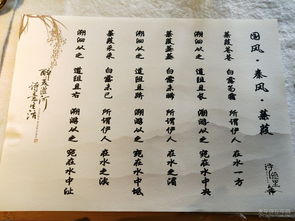 国风·秦风·蒹葭
蒹葭苍苍 白露为霜 所谓伊人 在水一方
溯洄从之 道阻且长 溯游从之 宛在水中央
蒹葭萋萋 白露未晞 所谓伊人 在水之湄
溯洄从之 道阻且跻 溯游从之 宛在水中坻
蒹葭采采 白露未已 所谓伊人 在水之涘
溯洄从之 道阻且右 溯游从之 宛在水中沚
诗意生活